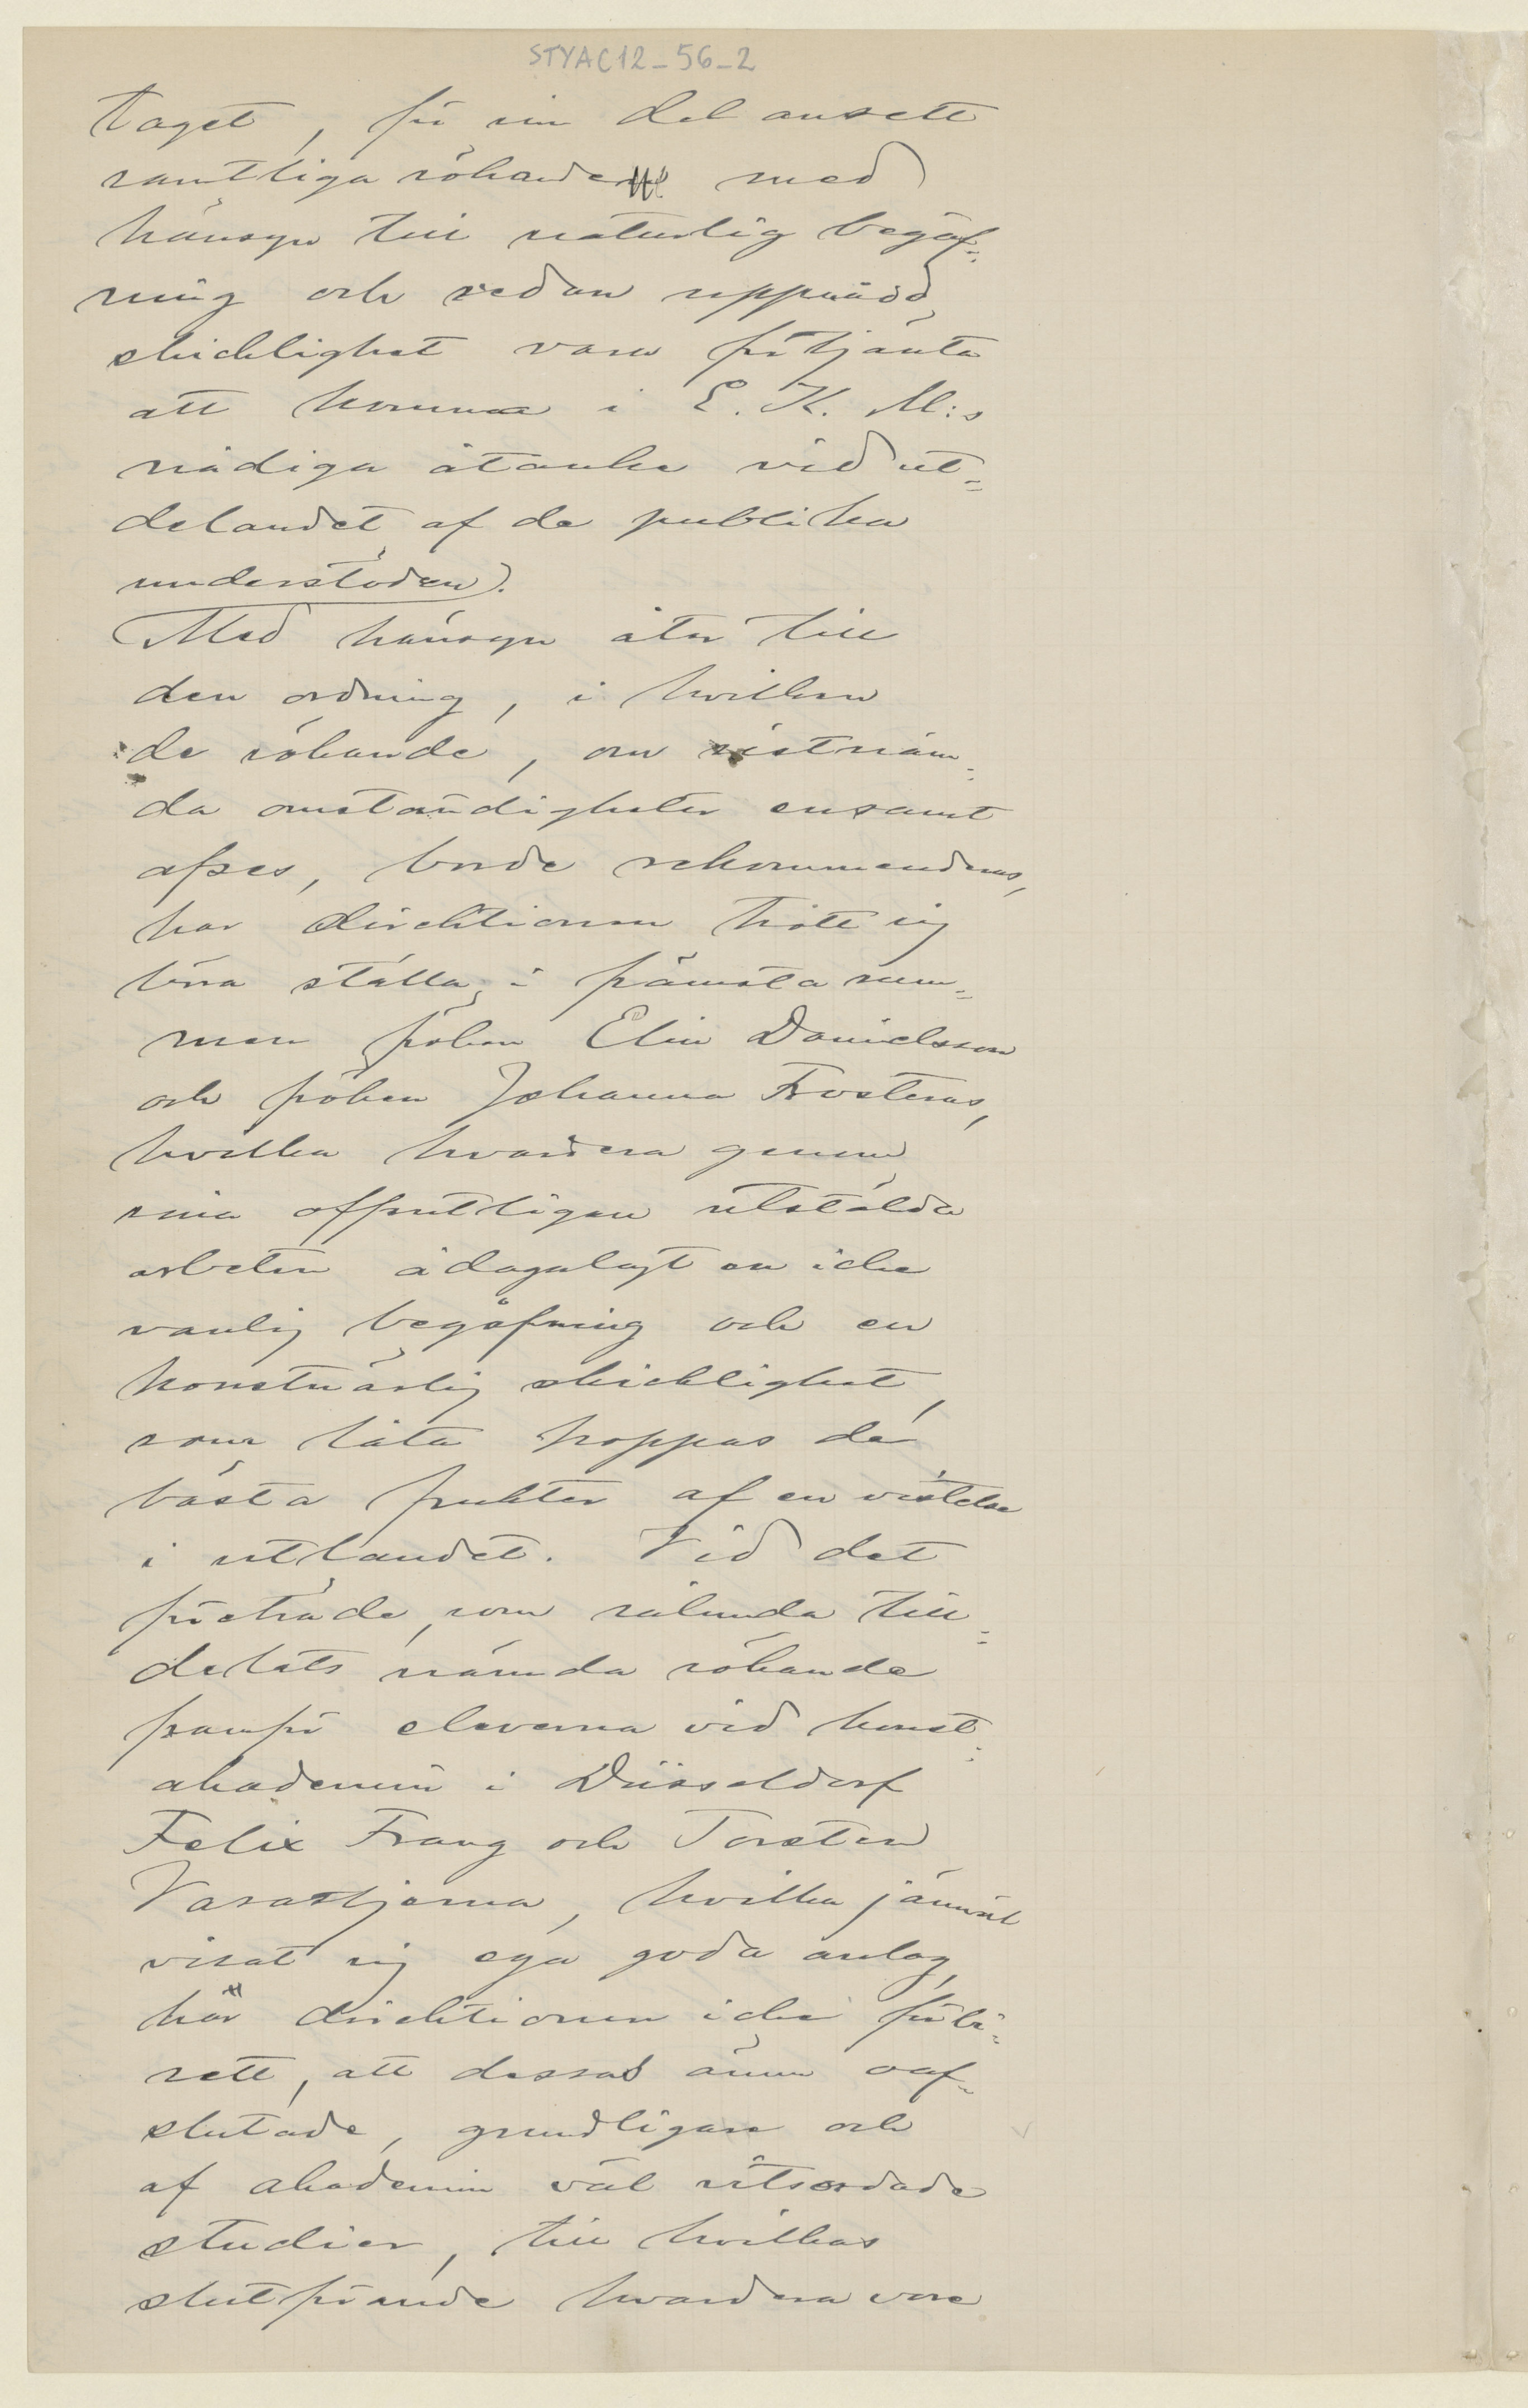 STYAC12_56_2
taget, för sin del ansett
samtliga sökande med
hänsyn till naturlig begåf-
ning och redan uppnådd
skicklighet vara förtjänta
att komma i E. K. M:s
nådiga åtanke vid ut-
delandet af de publika
understöden.
Med hänsyn åter till
den ordning, i hvilken
de sökande, om sistnäm-
da omständigheter ensamt
afses, borde rekommenderas,
har direktionen trott sig
böra ställa i främsta rum-
men fröken Elin Danielsson
och fröken Johanna Frosterus,
hvilka hvardera genom
sina offentligen utstälda
arbeten ådagalagt en icke
vanlig begåfning och en
konstnärlig skicklighet,
som låta hoppas de
bästa frukter af en vistelse
i utlandet. Vid det
företräde, som sålunda till-
delats nämda sökande
framför eleverna vid konst-
akademin i Düsseldorf
Felix Frang och Torsten
Vasastjerna, hvilka jämväl
visat sig ega goda anlag,
har direktionen icke förbi-
sett, att dessas ännu oaf-
slutade, grundligare och
af akademin väl vitsordade
studier, till hvilkas
slutförande hvardera vore